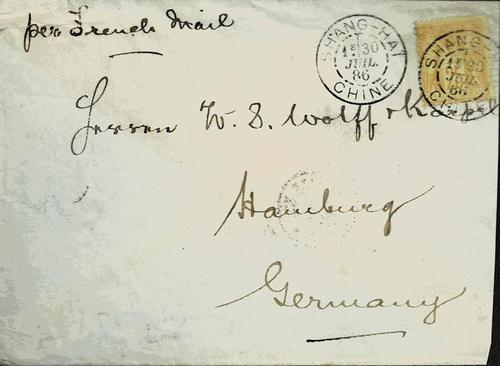 per French Mail
SHANG-HAI
1E 30
JUIL.
86
CHINE
SHANG-
1E 30
JUIL.
86
CHINE
Herren W. S. Wolff & Karpel
Hamburg
Germany